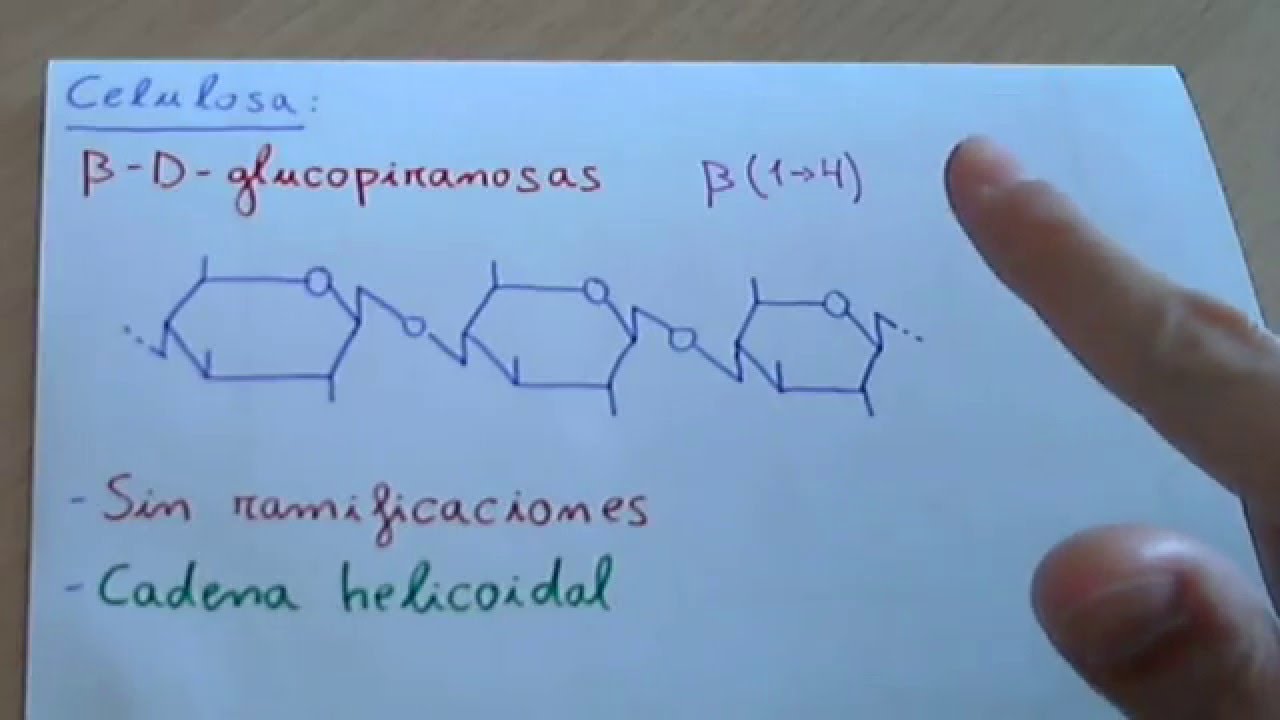 Celulosa:
β-D-glucopiranosas β(1→4)
- Sin ramificaciones
- Cadena helicoidal